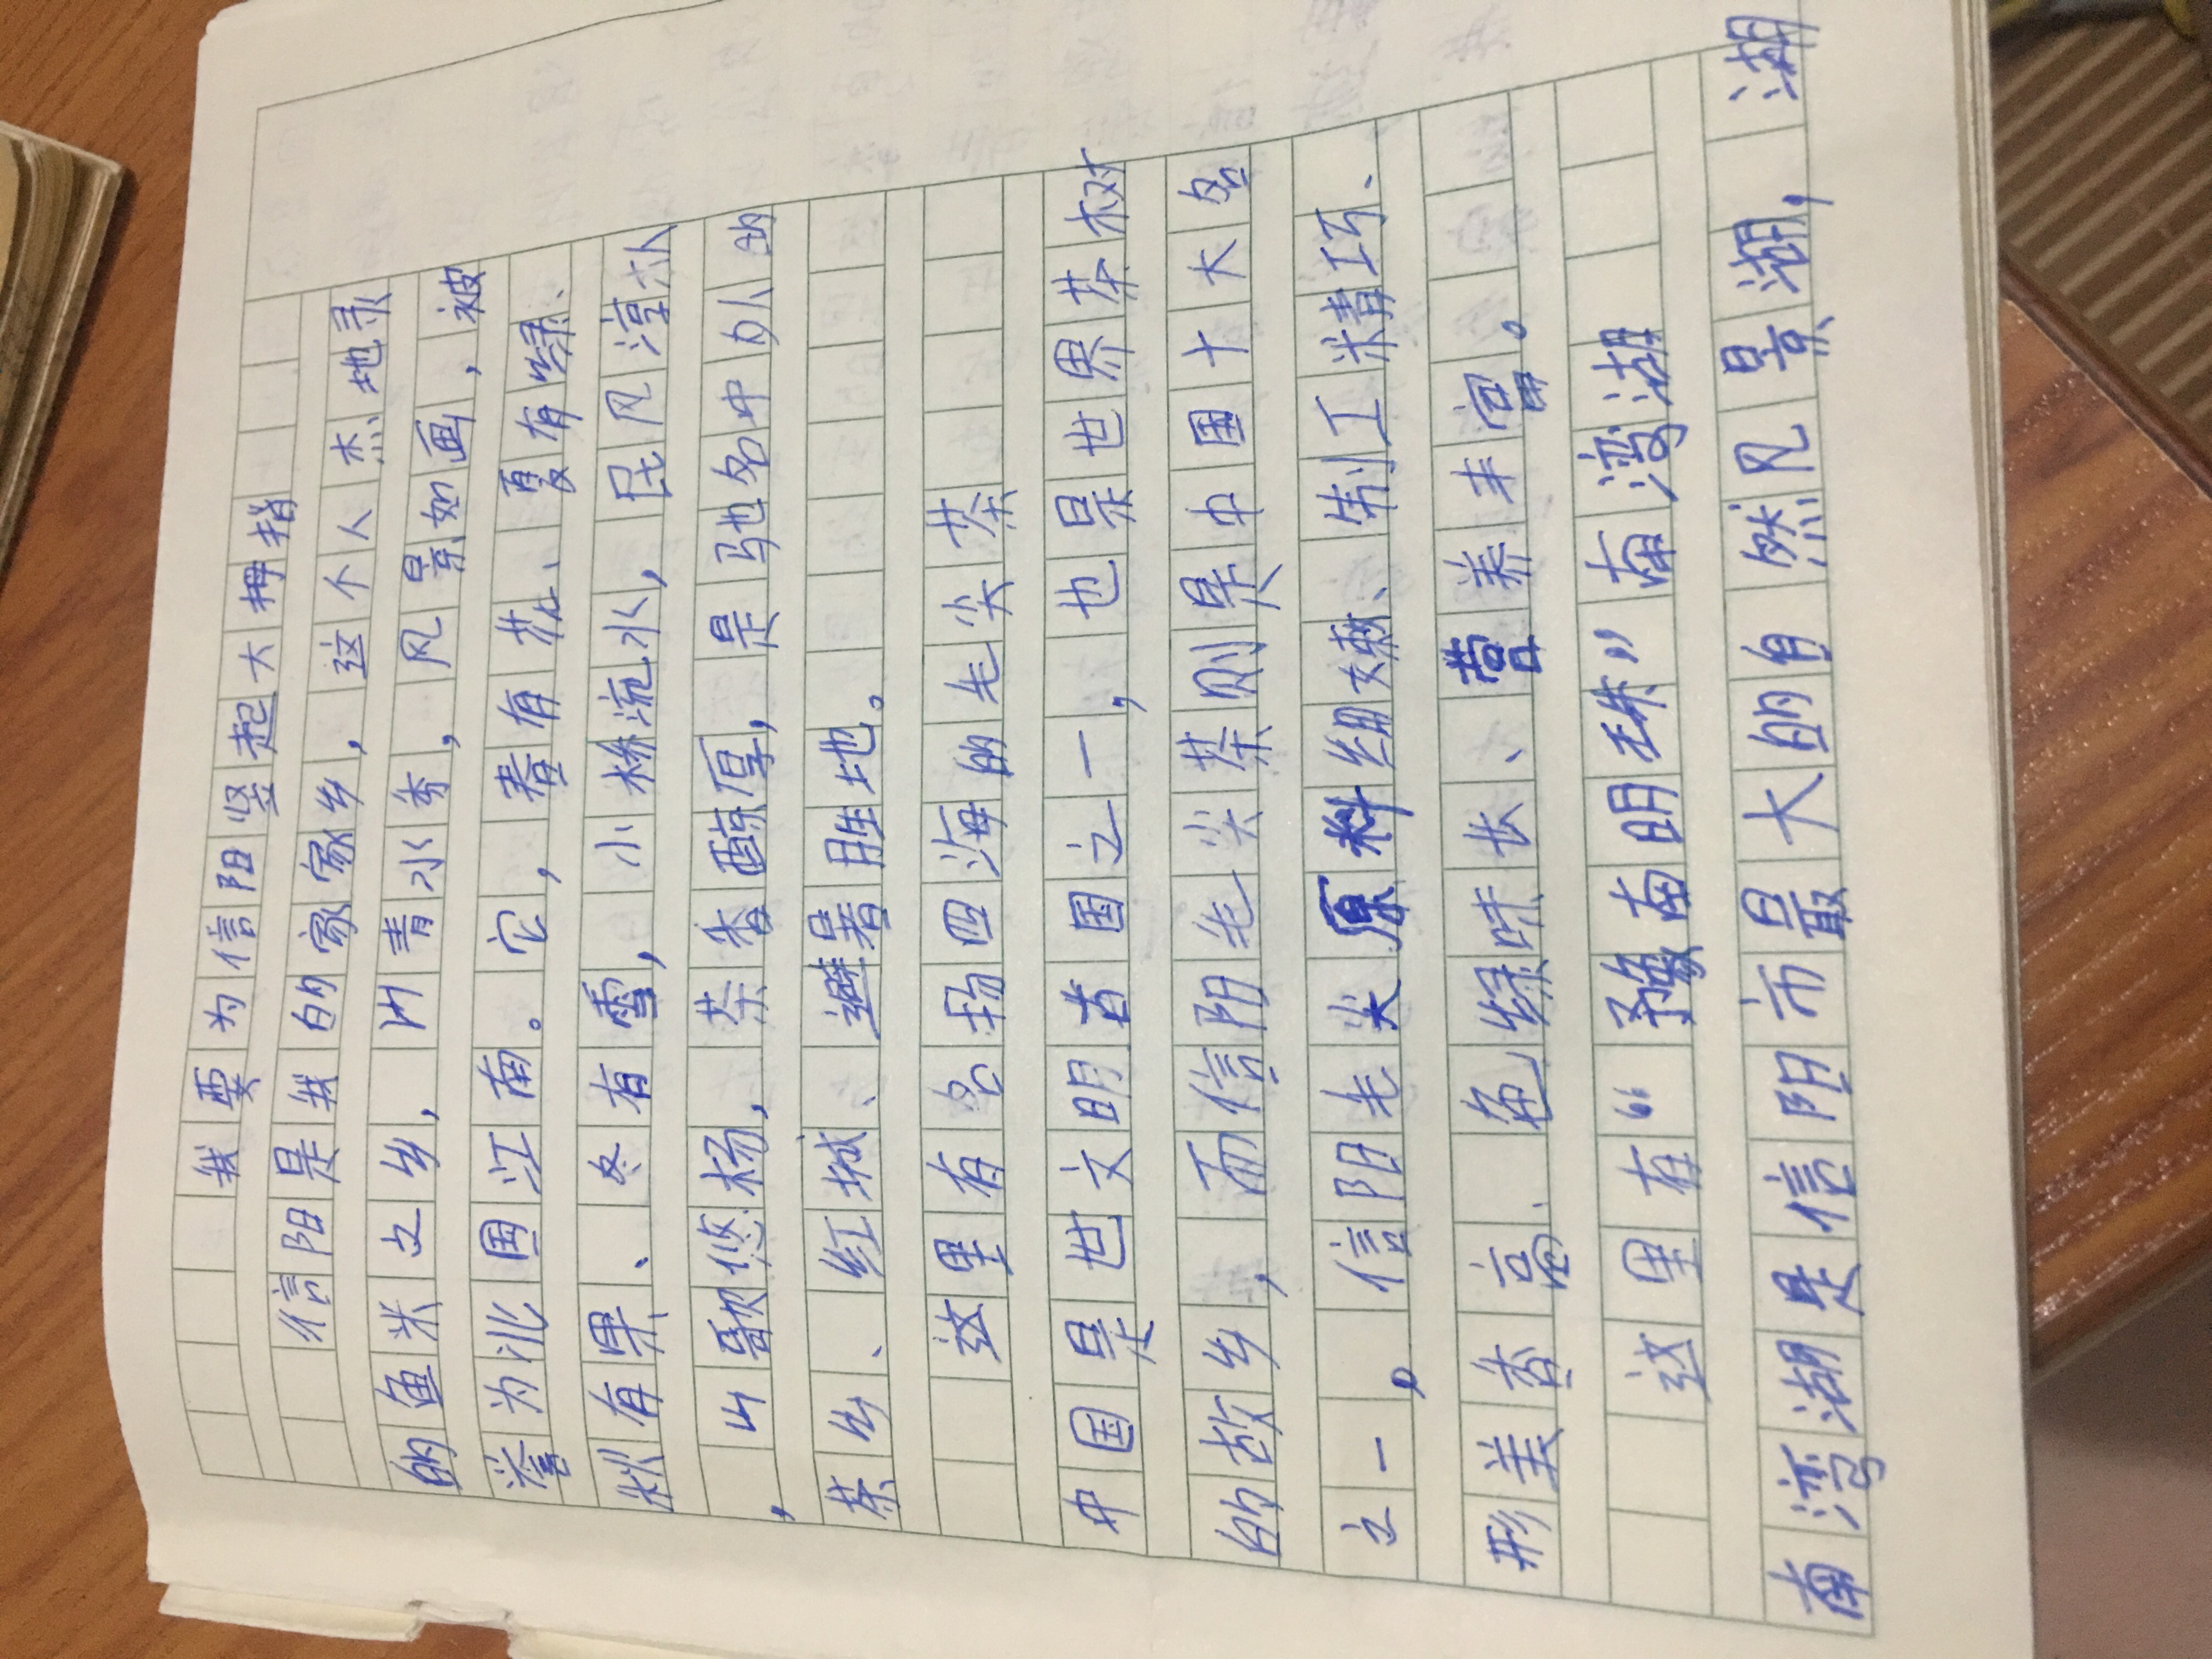 我要为信阳竖起大拇指
信阳是我的家家乡，这个人杰地灵
的鱼米之乡，山青水秀，风景如画，被
誉为北国江南。它，春有花、夏有绿、
秋有果、冬有雪，小桥流水，民风淳朴
，山歌悠杨，茶香醇厚，是驰名中外的
茶乡、红城、避暑胜地。
这里有名扬四海的毛尖茶
中国是世文明古国之一，也是世界茶树
的故乡，而信阳毛尖茶则是中国十大名
之一。信阳毛尖原料细嫩、制工精巧、
形美香高、色绿味长、营养丰富。
这里有“豫南明珠”南湾湖
南湾湖是信阳市最大的自然风景湖，湖